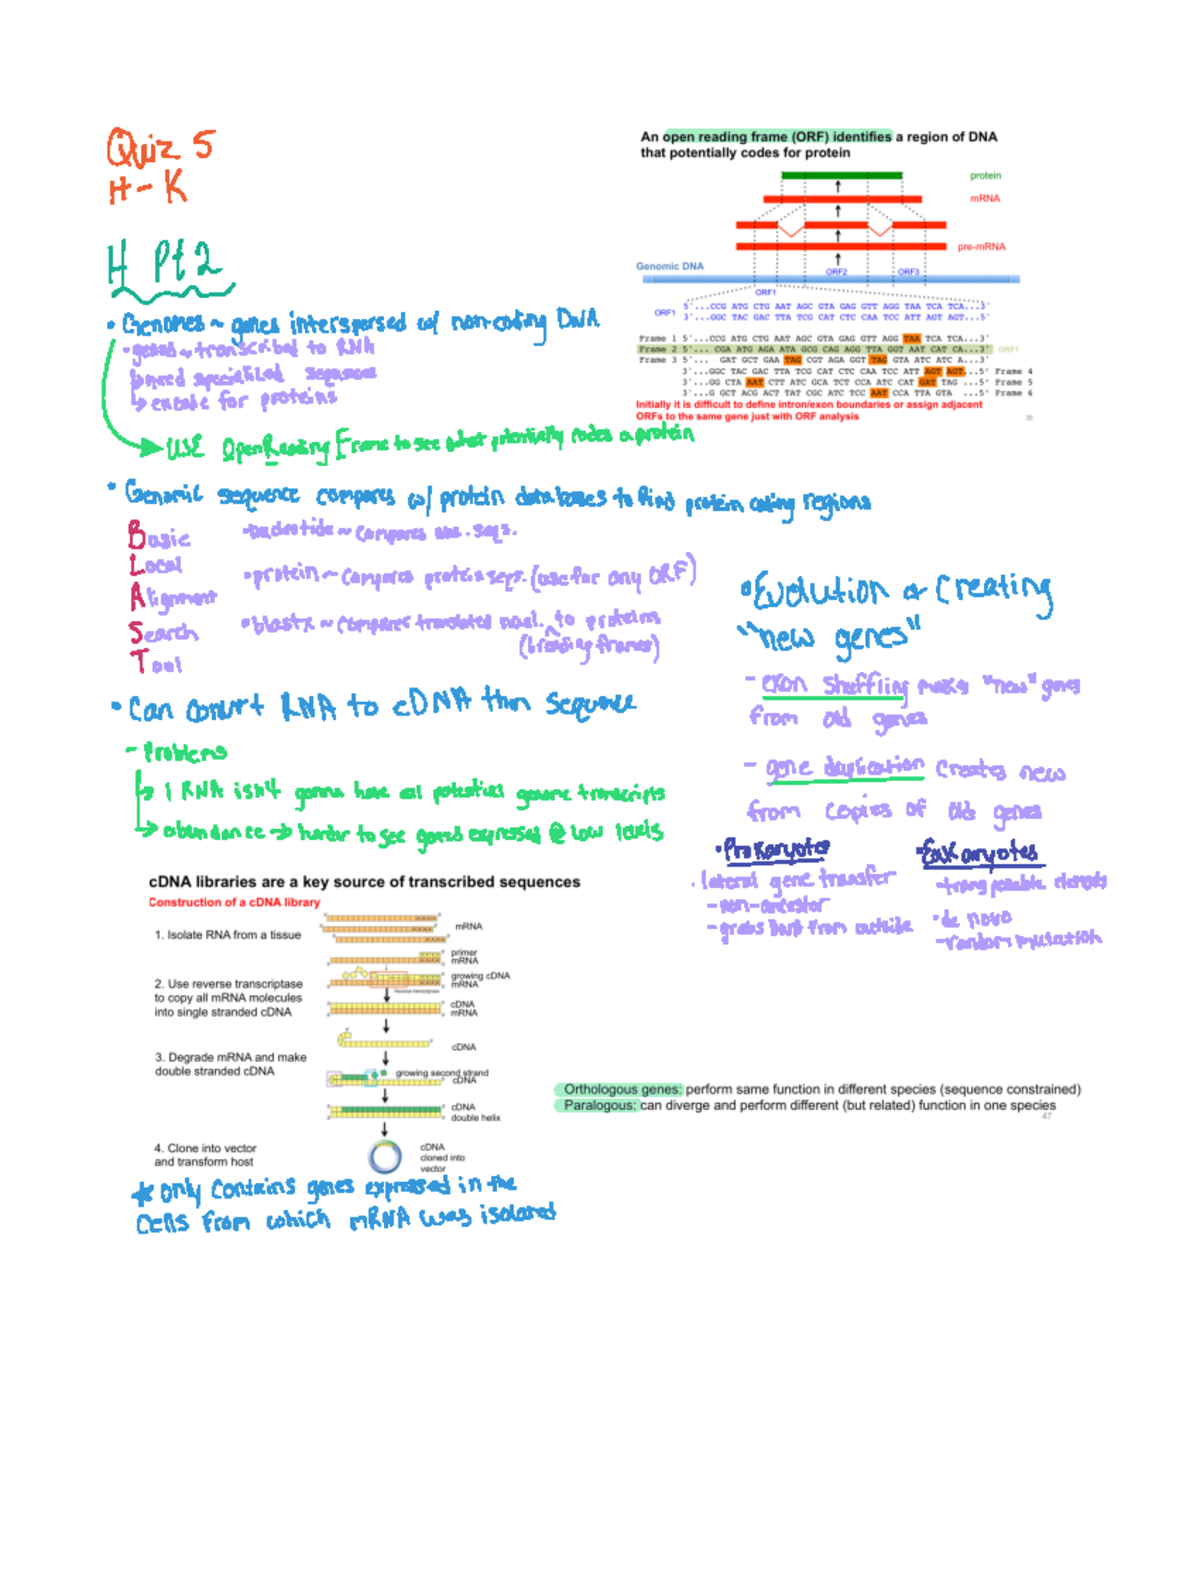 Quiz 5
H - K
H Pt 2
• Genomes ~ genes interspersed w/ non-coding DNA
• genes ~ transcribed to RNA
need specialized sequences
→ encode for proteins
USE Open Reading Frame to see what potentially codes a protein
An open reading frame (ORF) identifies a region of DNA
that potentially codes for protein
protein
mRNA
pre-mRNA
Genomic DNA
ORF2
ORF3
ORF1
ORF1
5'...CCG ATG CTG AAT AGC GTA GAG GTT AGG TAA TCA TCA...3'
3'...GGC TAC GAC TTA TCG CAT CTC CAA TCC ATT AGT AGT...5'
Frame 1 5'...CCG ATG CTG AAT AGC GTA GAG GTT AGG TAA TCA TCA...3'
Frame 2 5'... CGA ATG AGA ATA GCG CAG AGG TTA GGT AAT CAT CA...3' ORF1
Frame 3 5'... GAT GCT GAA TAG CGT AGA GGT TAG GTA ATC ATC A...3'
3'...GGC TAC GAC TTA TCG CAT CTC CAA TCC ATT AGT AGT...5' Frame 4
3'...GG CTA AAT CTT ATC GCA TCT CCA ATC CAT GAT TAG ...5' Frame 5
3'...G GCT ACG ACT TAT CGC ATC TCC AAT CCA TTA GTA ...5' Frame 6
Initially it is difficult to define intron/exon boundaries or assign adjacent
ORFs to the same gene just with ORF analysis
36
• Genomic sequence compares w/ protein databases to find protein coding regions
Basic
Local
Alignment
Search
Tool
• nucleotide ~ compares nuc. seqs.
• protein ~ compares protein seqs. (use for any ORF)
• blastx ~ compares translated nucl. to proteins
(6 reading frames)
• Can convert RNA to cDNA then sequence
- Problems
→ 1 RNA isn't gonna have all potential genome transcripts
→ abundance → harder to see genes expressed @ low levels
• Evolution & Creating
"new genes"
- exon shuffling makes "new" genes
from old genes
- gene duplication creates new
from copies of old genes
• Prokaryotes
• lateral gene transfer
- non-ancestor
- grabs DNA from outside
• Eukaryotes
- transposable elements
• de novo
- random mutation
cDNA libraries are a key source of transcribed sequences
Construction of a cDNA library
1. Isolate RNA from a tissue
mRNA
primer
mRNA
2. Use reverse transcriptase
to copy all mRNA molecules
into single stranded cDNA
growing cDNA
mRNA
Reverse transcriptase
cDNA
mRNA
cDNA
3. Degrade mRNA and make
double stranded cDNA
growing second strand
cDNA
cDNA
double helix
4. Clone into vector
and transform host
cDNA
cloned into
vector
Orthologous genes: perform same function in different species (sequence constrained)
Paralogous: can diverge and perform different (but related) function in one species
47
* only contains genes expressed in the
cells from which mRNA was isolated